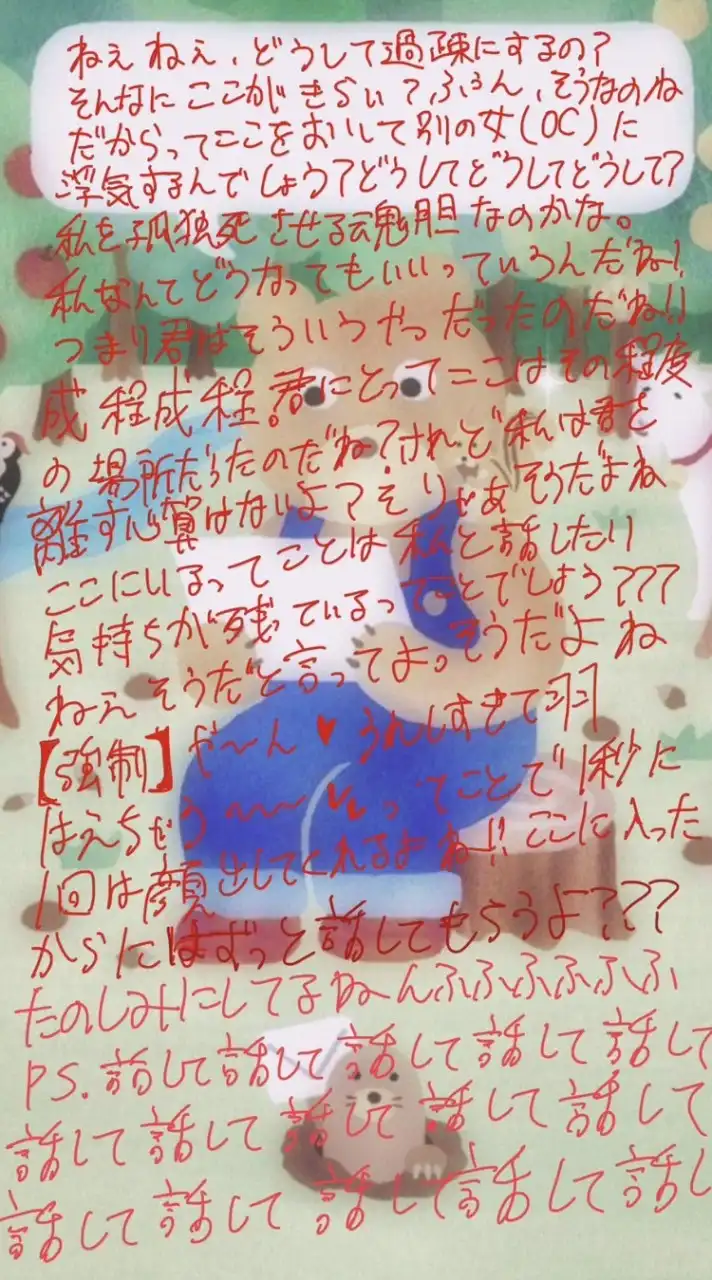 ねぇねぇ、どうして過疎にするの?
そんなにここがきらい?ふぅん、そうなのね
だからってここをおいて別の女(OC)に
浮気するんでしょう?どうしてどうしてどうして?
私を孤独死させる魂胆なのかな。
私なんてどうなってもいいっていうんだね!
つまり君はそういうやつだったのだね!!
成程成程。君にとってここはその程度
の場所だったのだね?されど私は君を
離す心算はないよ?そりゃあそうだよね
ここにいるってことは私と話したり
気持ちが残っているってことでしょう???
ねえそうだと言ってよ。そうだよね
【強制】や〜ん♥うれしすぎて羽
はえちゃう〜〜♥ってことで1秒に
1回は顔出してくれるよね!!ここに入った
からにはずっと話してもらうよ???
たのしみにしてるねーんふふふふふふ
PS.話して話して話して話して話して
話して話して話して話して話して
話して話して話して話して話し